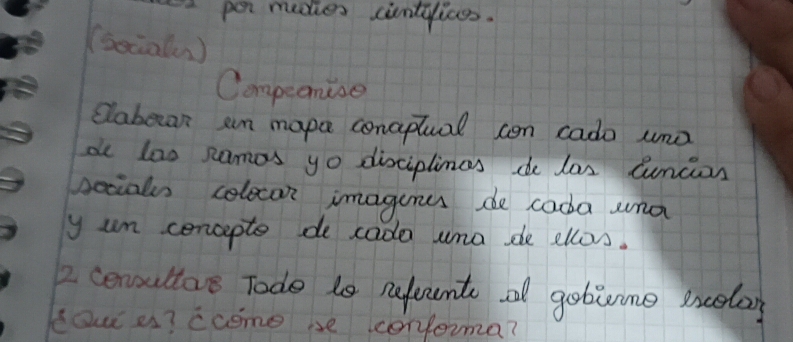 por medios cientificos.
(Sociales)
Compromiso
Elaborar un mapa conaptual con cada una
de las ramas yo disciplinas de las ciencias
sociales colocar imagenes de cada una
y un concepto de cada una de ellas.
2 consultar Todo lo referente al gobierno escolar
¿Qué es? ¿cómo se conforma?